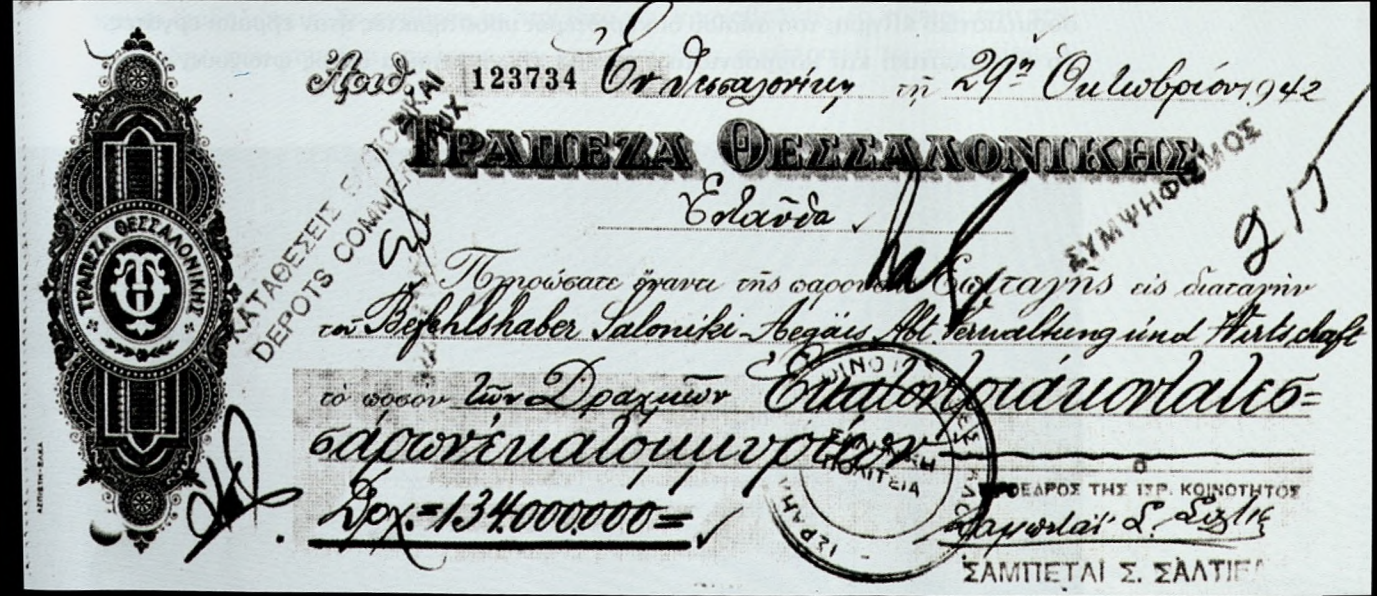 Ἀριθ. 123734 Ἐν Θεσσαλονίκῃ τῇ 29ῃ Ὀκτωβρίου 1942
ΤΡΑΠΕΖΑ ΘΕΣΣΑΛΟΝΙΚΗΣ
Ἐνταῦθα
ΚΑΤΑΘΕΣΕΙΣ
DEPOTS
ΣΥΜΨΗΦΙΣΜΟΣ
Πληρώσατε ἔναντι τῆς παρούσης Ἐπιταγῆς εἰς διαταγὴν
τοῦ Befehlshaber Saloniki-Aegäis Abt. Verwaltung und Wirtschaft
τὸ ποσὸν τῶν Δραχμῶν Ἑκατοντριάκοντατεσ=
σάρωνἑκατομμυρίων
Δρχ.=134.000.000=
ΤΡΑΠΕΖΑ ΘΕΣΣΑΛΟΝΙΚΗΣ
ΠΟΛΙΤΕΙΑ
ΠΡΟΕΔΡΟΣ ΤΗΣ ΙΣΡ. ΚΟΙΝΟΤΗΤΟΣ
ΣΑΜΠΕΤΑΙ Σ. ΣΑΛΤΙΕΛ
ΑΣΠΙΩΤΗ-ΕΛΚΑ